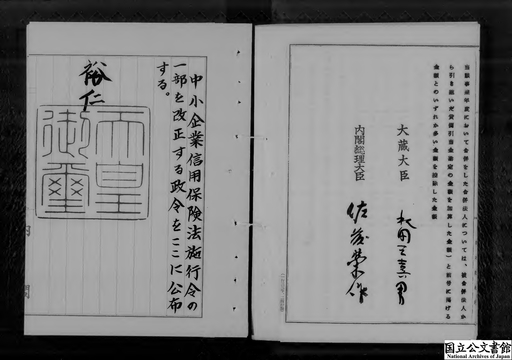 当該事業年度において合併をした合併法人については、被合併法人か
ら引き継いだ貸倒引当金勘定の金額を加算した金額）と前号に掲げる
金額とのいずれか多い金額を控除した金額
大蔵大臣 水田三喜男
内閣総理大臣 佐藤榮作
中小企業信用保険法施行令の
一部を改正する政令をここに公布
する。
裕仁
天皇
御璽
国立公文書館
National Archives of Japan